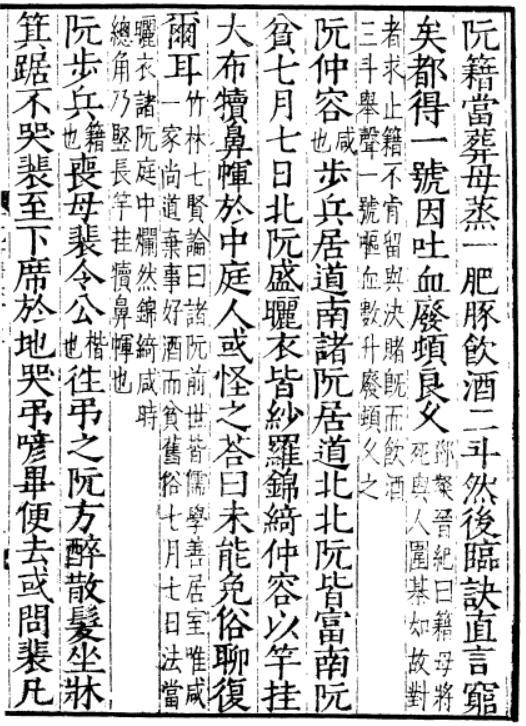 阮籍當葬母蒸一肥豚飲酒二斗然後臨訣直言窮
矣都得一號因吐血廢頓良久鄧粲晉紀曰籍母將死與人圍棊如故對
者求止籍不肯留與決賭旣而飲酒
三斗舉聲一號嘔血數升廢頓久之
阮仲容咸也步兵居道南諸阮居道北北阮皆富南阮
貧七月七日北阮盛曬衣皆紗羅錦綺仲容以竿挂
大布犢鼻㡓於中庭人或怪之荅曰未能免俗聊復
爾耳竹林七賢論曰諸阮前世皆儒學善居室唯咸一家尚道棄事好酒而貧舊俗七月七日法當
曬衣諸阮庭中爛然錦綺咸時
總角乃竪長竿挂犢鼻㡓也
阮步兵籍也喪母裴令公楷也往弔之阮方醉散髮坐牀
箕踞不哭裴至下席於地哭弔喭畢便去或問裴凡